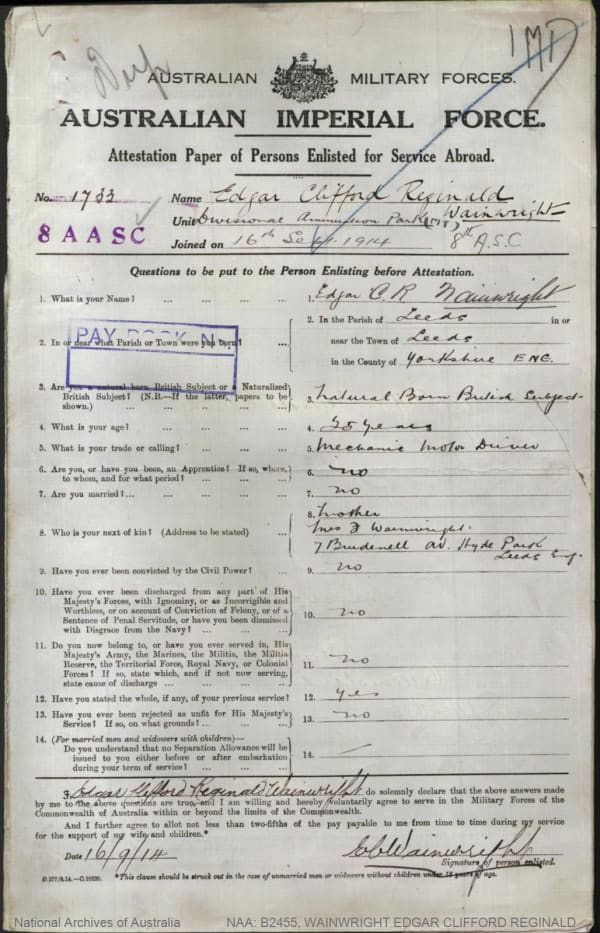 Dup
1MD
AUSTRALIAN MILITARY FORCES.
AUSTRALIAN IMPERIAL FORCE.
Attestation Paper of Persons Enlisted for Service Abroad.
No. 1733 Name Edgar Clifford Reginald
Wainwright
8 AASC Unit Divisional Ammunition Park (MT)
Joined on 16th Sept 1914 8th A.S.C
Questions to be put to the Person Enlisting before Attestation.
1. What is your Name? ... ... ... ... 1. Edgar C. R Wainwright
PAY BOOK N
2. In or near what Parish or Town were you born? ... 2. In the Parish of Leeds in or
near the Town of Leeds
in the County of Yorkshire ENG.
3. Are you a natural born British Subject or a Naturalized
British Subject? (N.B.—If the latter, papers to be
shown.) ... ... ... ... 3. Natural Born British Subject
4. What is your age? ... ... ... ... 4. 25 years
5. What is your trade or calling? ... ... ... 5. Mechanic Motor Driver
6. Are you, or have you been, an Apprentice? If so, where,
to whom, and for what period? ... ... ... 6. no
7. Are you married? ... ... ... ... 7. no
8. Who is your next of kin? (Address to be stated) ... 8. Mother
Mrs F Wainwright.
7 Brudenell Av. Hyde Park
Leeds Eng.
9. Have you ever been convicted by the Civil Power? ... 9. no
10. Have you ever been discharged from any part of His
Majesty's Forces, with Ignominy, or as Incorrigible and
Worthless, or on account of Conviction of Felony, or of a
Sentence of Penal Servitude, or have you been dismissed
with Disgrace from the Navy? ... ... ... 10. no
11. Do you now belong to, or have you ever served in, His
Majesty's Army, the Marines, the Militia, the Militia
Reserve, the Territorial Force, Royal Navy, or Colonial
Forces? If so, state which, and if not now serving,
state cause of discharge ... ... ... ... 11. no
12. Have you stated the whole, if any, of your previous service? 12. yes
13. Have you ever been rejected as unfit for His Majesty's
Service? If so, on what grounds? ... ... ... 13. no
14. (For married men and widowers with children)—
Do you understand that no Separation Allowance will be
issued to you either before or after embarkation
during your term of service? ... ... ... 14. —
I, Edgar Clifford Reginald Wainwright do solemnly declare that the above answers made
by me to the above questions are true, and I am willing and hereby voluntarily agree to serve in the Military Forces of the
Commonwealth of Australia within or beyond the limits of the Commonwealth.
And I further agree to allot not less than two-fifths of the pay payable to me from time to time during my service
for the support of my wife and children.*
Date 16/9/14 E C Wainwright
Signature of person enlisted.
*This clause should be struck out in the case of unmarried men or widowers without children under 18 years of age.
National Archives of Australia NAA: B2455, WAINWRIGHT EDGAR CLIFFORD REGINALD